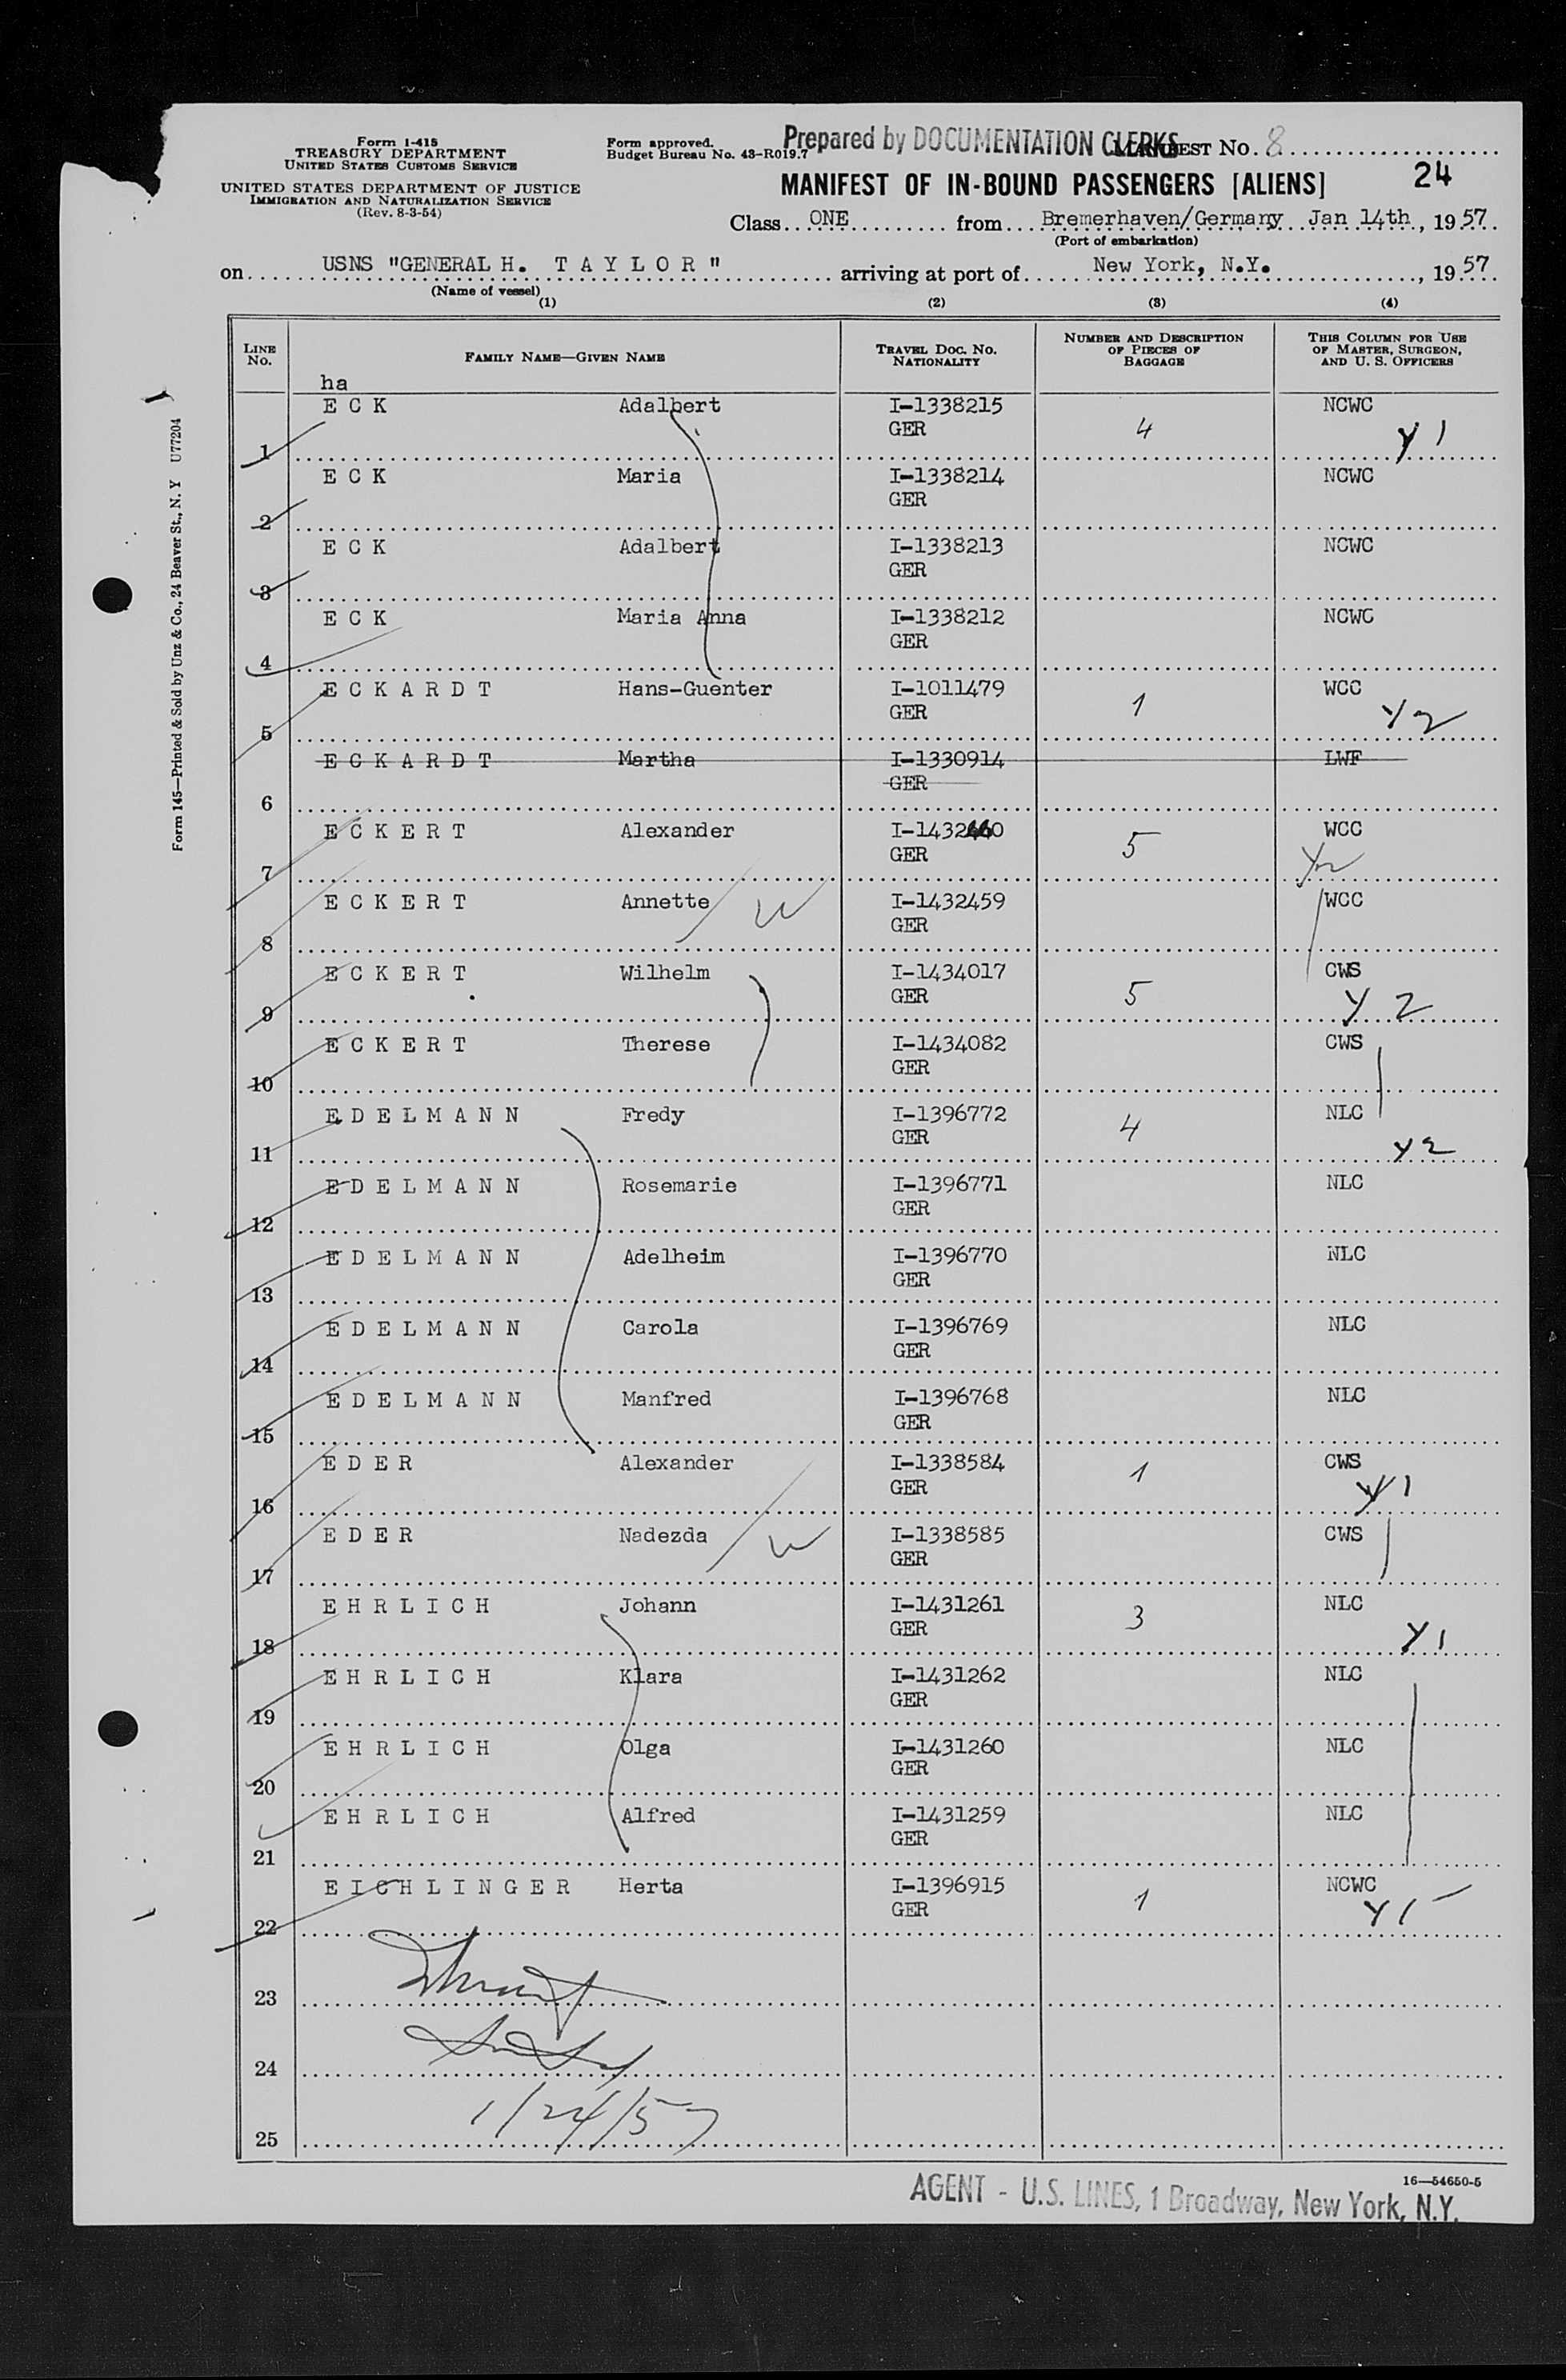 Form I-415
TREASURY DEPARTMENT
UNITED STATES CUSTOMS SERVICE
UNITED STATES DEPARTMENT OF JUSTICE
IMMIGRATION AND NATURALIZATION SERVICE
(Rev. 8-3-54)
Form approved.
Budget Bureau No. 43-R019.7
Prepared by DOCUMENTATION CLERKS
MANIFEST No. 8
24
MANIFEST OF IN-BOUND PASSENGERS [ALIENS]
Class ONE from Bremerhaven/Germany Jan 14th, 1957
(Port of embarkation)
on USNS "GENERAL H. T A Y L O R" arriving at port of New York, N.Y., 1957
(Name of vessel)
(1) (2) (3) (4)
LINE No. FAMILY NAME—GIVEN NAME TRAVEL DOC. NO. NATIONALITY NUMBER AND DESCRIPTION OF PIECES OF BAGGAGE THIS COLUMN FOR USE OF MASTER, SURGEON, AND U. S. OFFICERS
ha
1 E C K Adalbert I-1338215 GER 4 NCWC Y 1
2 E C K Maria I-1338214 GER NCWC
3 E C K Adalbert I-1338213 GER NCWC
4 E C K Maria Anna I-1338212 GER NCWC
5 E C K A R D T Hans-Guenter I-1011479 GER 1 WCC Y2
6 E C K A R D T Martha I-1330914 GER LWF
7 E C K E R T Alexander GER 5 WCC Y2
8 E C K E R T Annette W I-1432459 GER WCC
9 E C K E R T Wilhelm I-1434017 GER 5 CWS Y 2
10 E C K E R T Therese I-1434082 GER CWS
11 E D E L M A N N Fredy I-1396772 GER 4 NLC Y2
12 E D E L M A N N Rosemarie I-1396771 GER NLC
13 E D E L M A N N Adelheim I-1396770 GER NLC
14 E D E L M A N N Carola I-1396769 GER NLC
15 E D E L M A N N Manfred I-1396768 GER NLC
16 E D E R Alexander I-1338584 GER 1 CWS Y1
17 E D E R Nadezda W I-1338585 GER CWS
18 E H R L I C H Johann I-1431261 GER 3 NLC Y1
19 E H R L I C H Klara I-1431262 GER NLC
20 E H R L I C H Olga I-1431260 GER NLC
21 E H R L I C H Alfred I-1431259 GER NLC
22 E I C H L I N G E R Herta I-1396915 GER 1 NCWC Y1
23
24
25 1/24/57
16—54650-5
AGENT - U.S. LINES, 1 Broadway, New York, N.Y.
Form 145—Printed & Sold by Unz & Co., 24 Beaver St., N. Y U77204